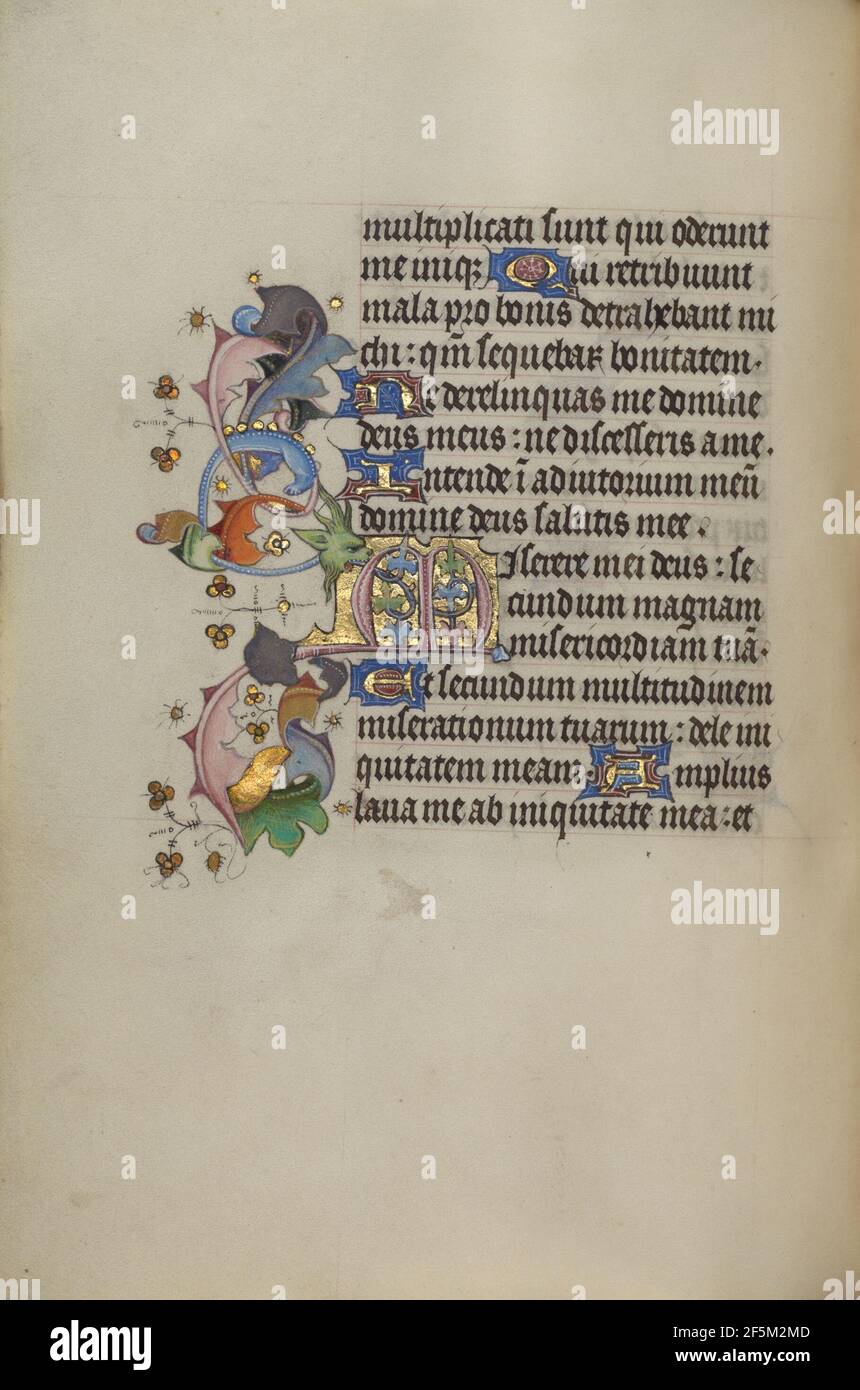 multiplicati sunt qui oderunt
me iniqꝫ Qui retribuunt
mala pro bonis detrahebant mi
chi : qm̄ sequebar bonitatem.
Ne derelinquas me domine
deus meus : ne discesseris a me.
Intende ī adiutorium meū
domine deus salutis mee.
Miserere mei deus : se
cundum magnam
misericordiam tuā.
Et secundum multitudinem
miserationum tuarum : dele ini
quitatem meam. Amplius
laua me ab iniquitate mea : et
alamy
alamy
a
a
a
a
a
a
a
a
a
a
a
alamy
Image ID: 2F5M2MD
www.alamy.com